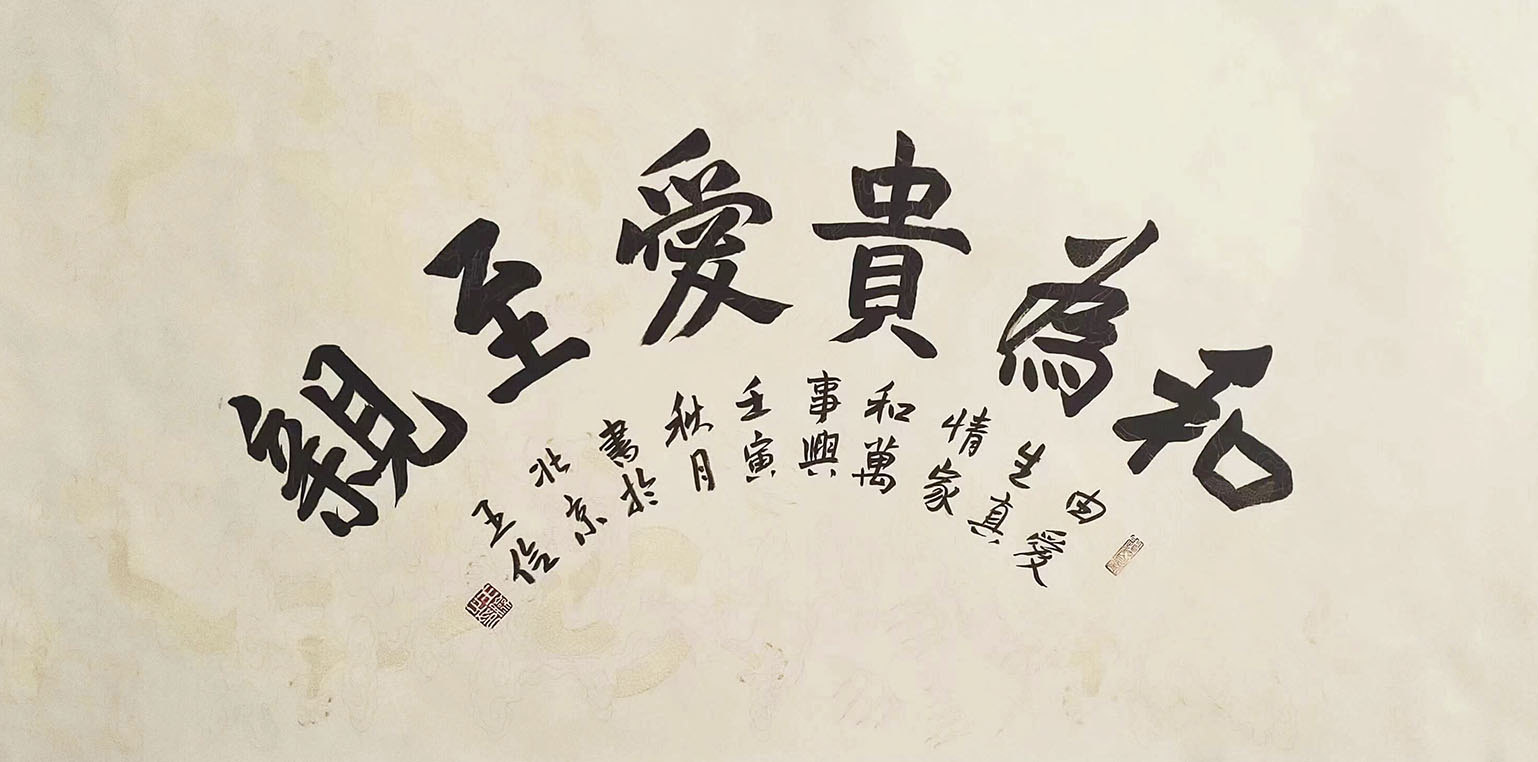 和為貴愛至親
由愛
生真
情家
和萬
事興
壬寅
秋月
書於
北京
王信